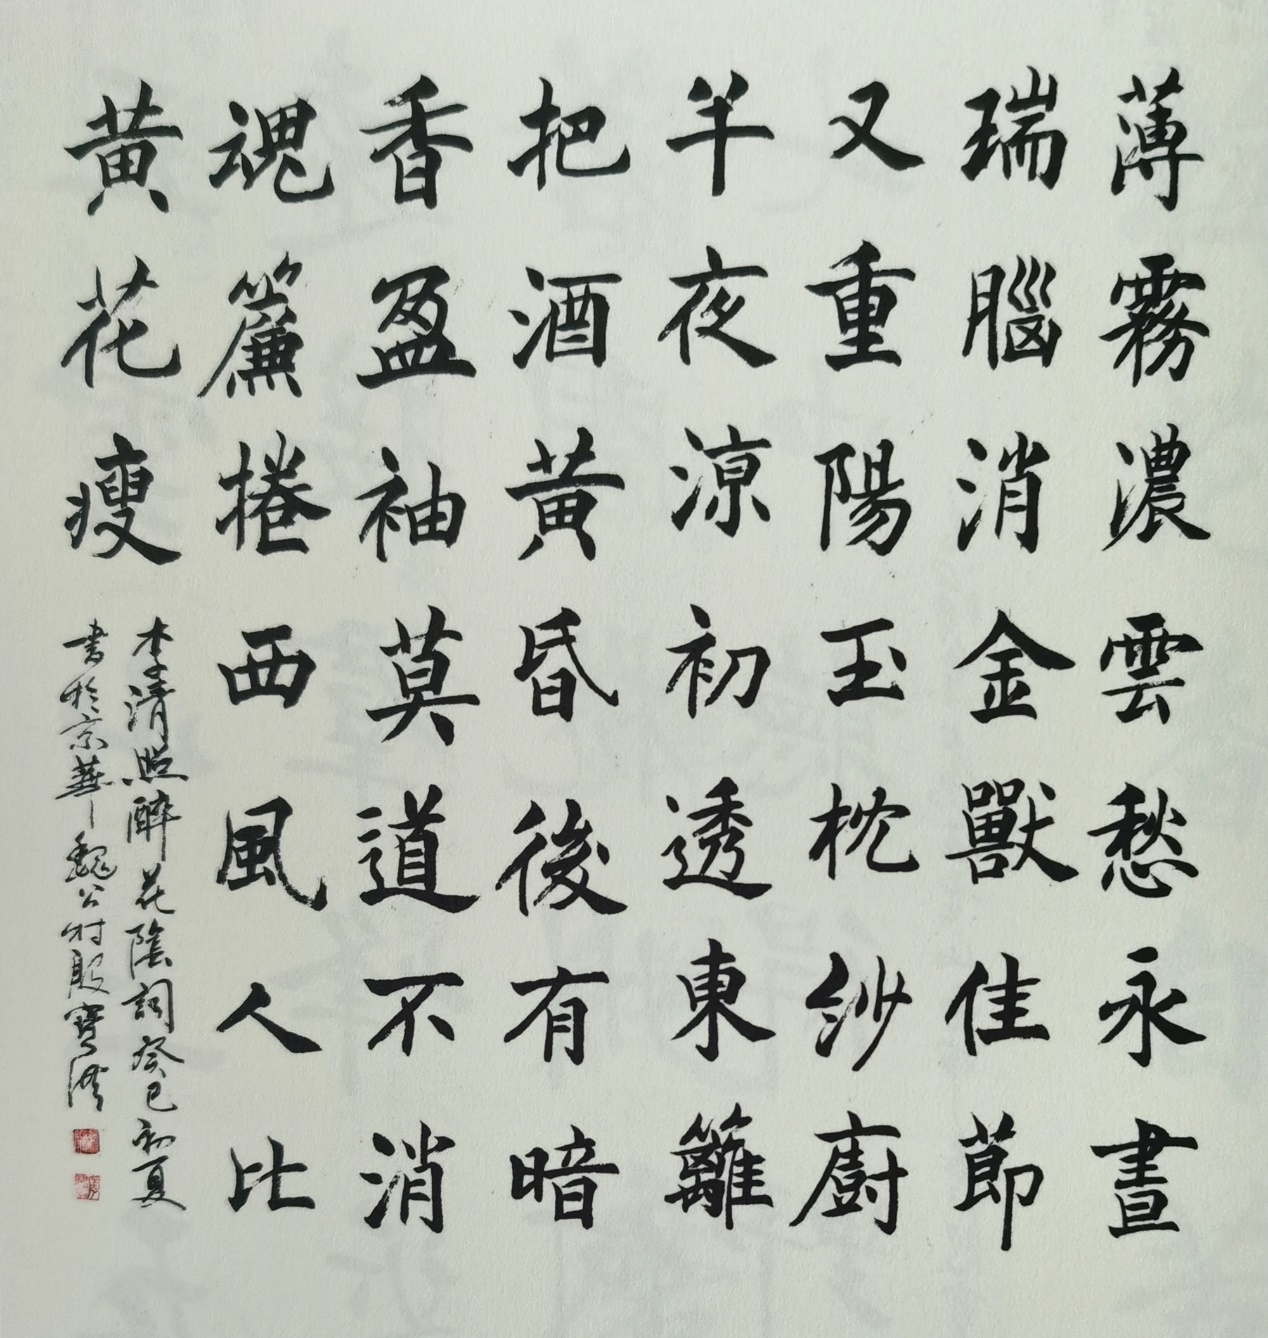 薄霧濃雲愁永晝
瑞腦消金獸佳節
又重陽玉枕紗廚
半夜涼初透東籬
把酒黃昏後有暗
香盈袖莫道不消
魂簾捲西風人比
黃花瘦
李清照醉花陰詞癸巳初夏
書於京華魏公村殷寶洪